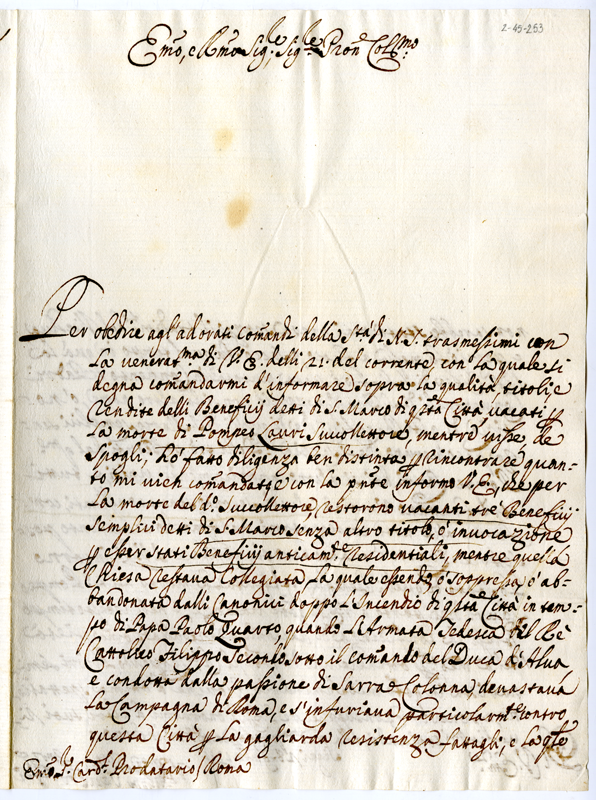 2-45-253
Emo, e Rmo Sig.e Sig.e Pron Collmo
Per obedire agl'adorati comandi della Sta di N. S. trasmessimi con
la venerat.ma di V. E. delli 21 del corrente, con la quale si
degna comandarmi d'informare sopra la qualità, titoli, e
rendite delli Beneficij detti di S. Marco di qsta Città, vacati p
la morte di Pompeo Lauri Succollettore, mentre visse, de
Spogli; hò fatto diligenza ben distinta p rincontrare quan-
to mi vien comandato e con la pnte informo V. E., che per
la morte del do. Succollettore restorono vacanti tre Beneficij
semplici detti di S. Marco senza altro titolo, ò invocazione
p esser stati Beneficij anticam.e Residentiali, mentre quella
Chiesa restava Collegiata la quale essendo, ò soppressa, ò ab-
bandonata dalli Canonici doppo l'Incendio di qsta Città in tem-
po di Papa Paolo Quarto quando l'Armata Tedesca del Rè
Cattolico Filippo Secondo sotto il comando del Duca d'Alva
e condotta dalla passione di Sarra Colonna devastava
la Campagna di Roma, e s'infuriava particolarm.e contro
questa Città p la gagliarda resistenza fattagli, e la qle
Emo Sr. Card. Prodatario / Roma